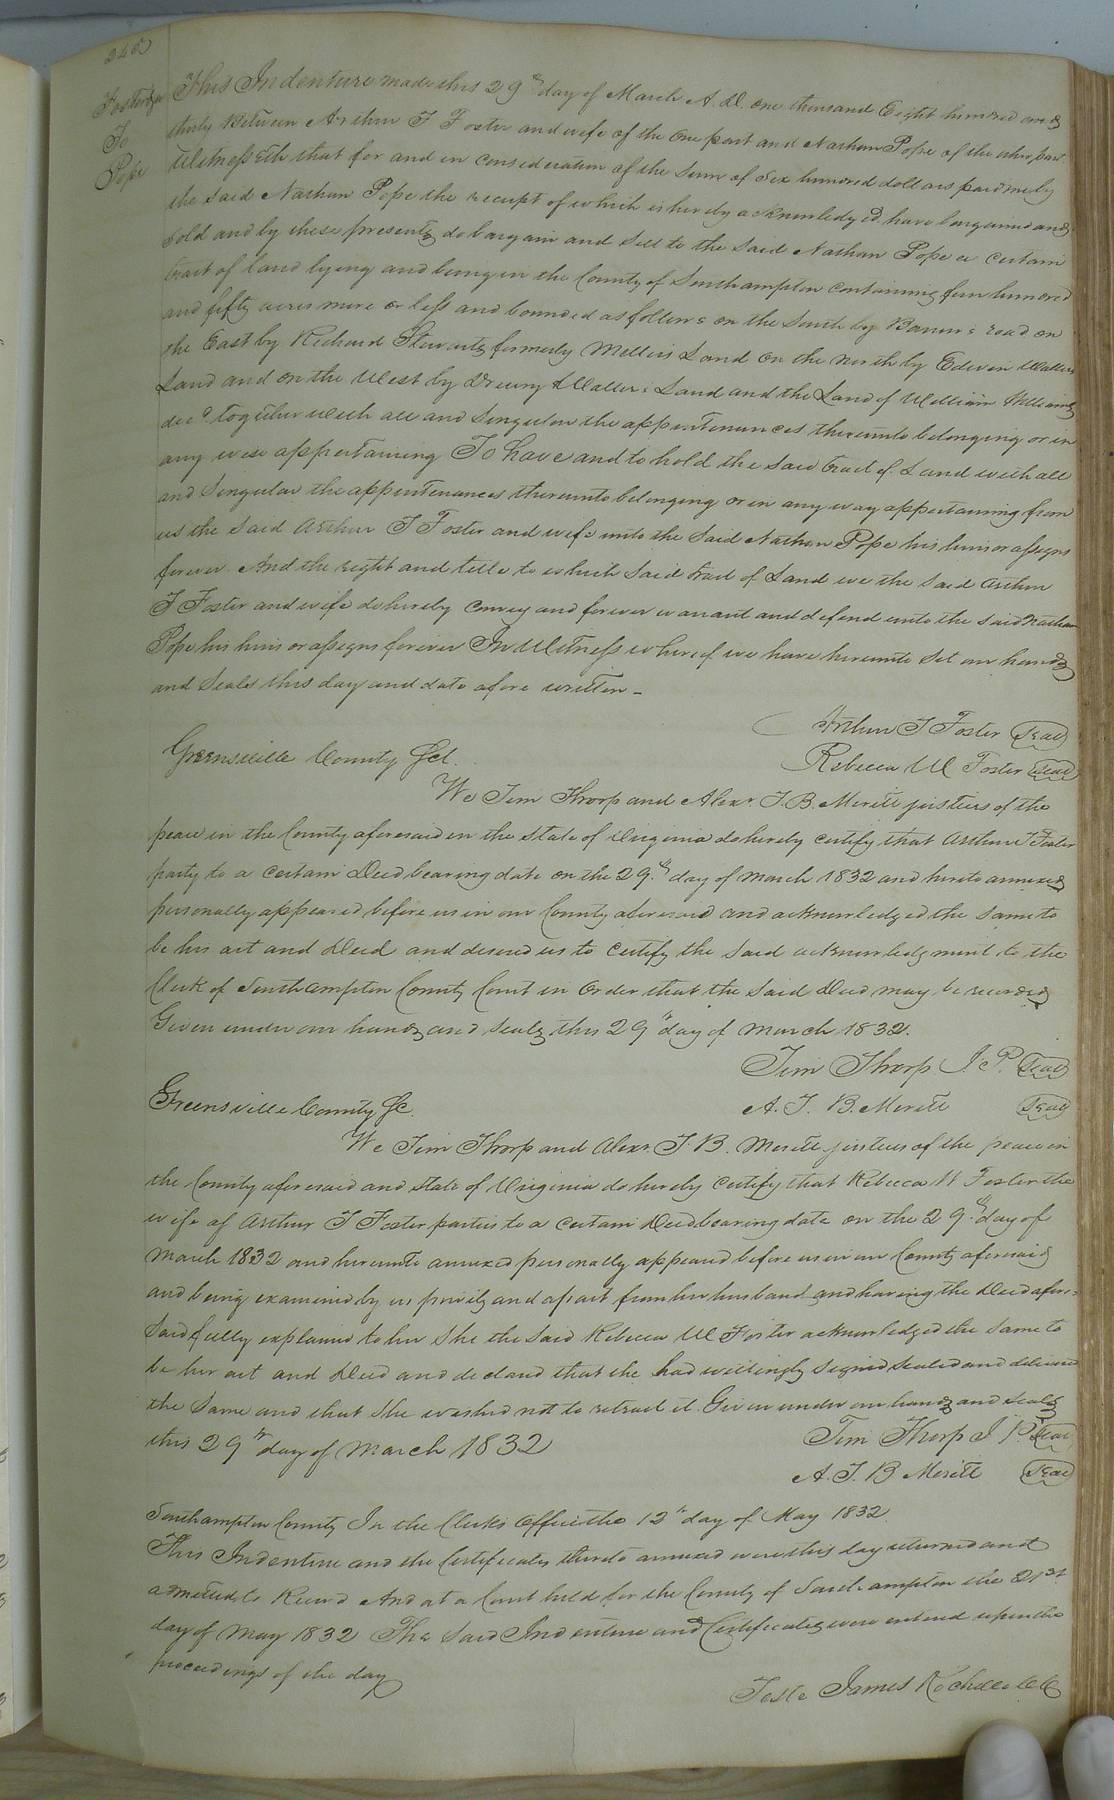 Foster &c
To
Pope
This Indenture made this 29th day of March A. D. one thousand Eight hundred and
thirty Between Arthur T Foster and wife of the one part and Nathan Pope of the other part
Witnesseth that for and in consideration of the sum of six hundred dollars paid me by
the said Nathan Pope the receipt of which is hereby acknowledged have bargained and
sold and by these presents do bargain and sell to the said Nathan Pope a certain
tract of land lying and being in the County of Southampton containing four hundred
and fifty acres more or less and bounded as follows on the South by Barrow's road on
the East by Richard Stewarts formerly Millers Land on the north by Edwin Wallers
Land and on the West by Drewry Waller's Land and the Land of William Williams
decd. together with all and Singular the appertenances thereunto belonging or in
any wise appertaining To have and to hold the said tract of Land with all
and Singular the appertenances thereunto belonging or in any way appertaining from
us the said Arthur T Foster and wife unto the said Nathan Pope his heirs or assigns
forever And the right and title to which said tract of Land we the said Arthur
T Foster and wife do hereby convey and forever warrant and defend unto the said Nathan
Pope his heirs or assigns forever In Witness whereof we have hereunto set our hands
and seals this day and date afore written -
Arthur T Foster Seal
Rebecca W Foster Seal
Greensville County Sct.
We Tim Thorp and Alexr T. B. Meritt justices of the
peace in the County aforesaid in the State of Virginia do hereby certify that Arthur T Foster
party to a certain Deed bearing date on the 29th day of March 1832 and hereto annexed
personally appeared before us in our County aforesaid and acknowledged the same to
be his act and Deed and desired us to certify the said acknowledgment to the
Clerk of Southampton County Court in order that the said Deed may be recorded
Given under our hands and seals this 29th day of March 1832.
Tim Thorp J. P. Seal
A. T. B. Meritt Seal
Greensville County Sc.
We Tim Thorp and Alexr. T. B. Meritt justices of the peace in
the County aforesaid and State of Virginia do hereby certify that Rebecca W Foster the
wife of Arthur T Foster parties to a certain Deed bearing date on the 29th day of
March 1832 and hereunto annexed personally appeared before us in our County aforesaid
and being examined by us privily and apart from her husband and having the Deed afore-
said fully explained to her She the said Rebecca W Foster acknowledged the same to
be her act and Deed and declared that she had willingly signed sealed and delivered
the same and that she wished not to retract it. Given under our hands and seals
this 29th day of March 1832
Tim Thorp J P. Seal
A. T. B Meritt Seal
Southampton County In the Clerks Office the 12th day of May 1832.
This Indenture and the Certificates thereto annexed were this day returned and
admitted to Record And at a Court held for the County of Southampton the 21st
day of May 1832 The said Indenture and Certificates were entered upon the
proceedings of the day
Teste James Rochelle CC